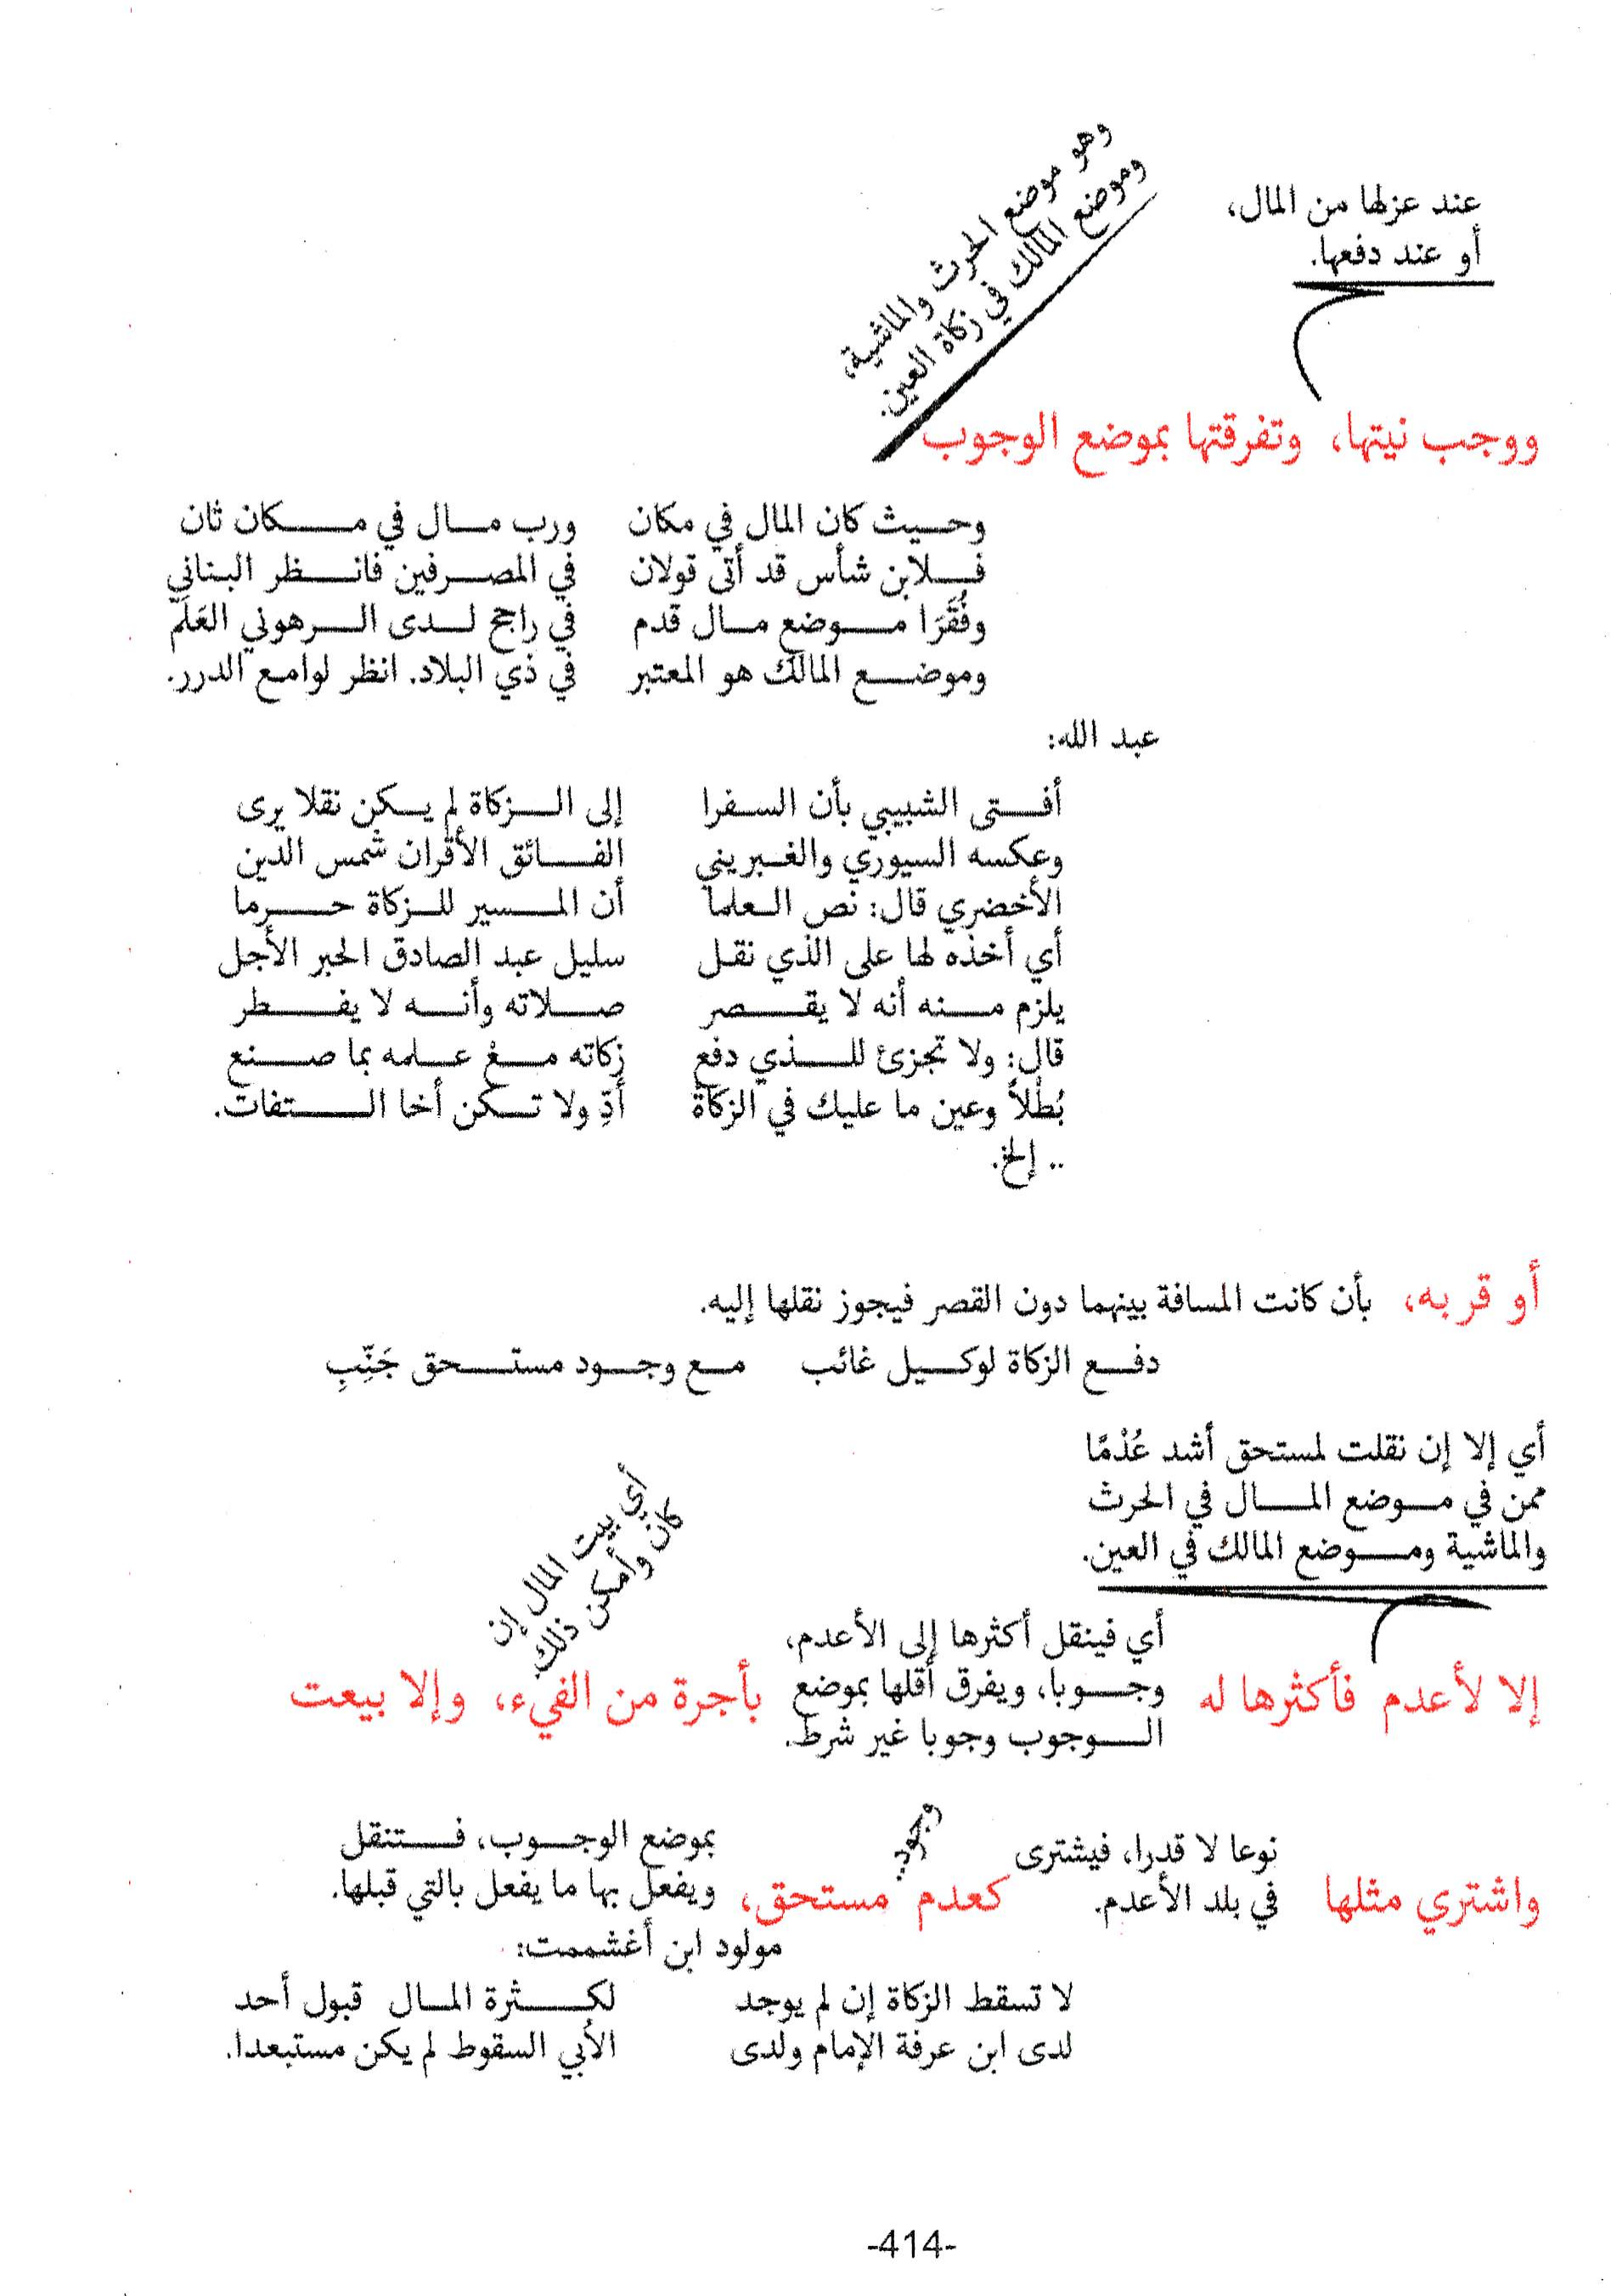 عند عزلها من المال،
أو عند دفعها.
وهو موضع الحرث والماشية،
وموضع المالك في زكاة العين.
ووجب نيتها، وتفرقتها بموضع الوجوب
وحيث كان المال في مكان ورب مال في مكان ثان
فلابن شأس قد أتى قولان في المصرفين فانظر البناني
وفُقَرَا موضع مال قدم في راجح لدى الرهوني العَلَم
وموضع المالك هو المعتبر في ذي البلاد. انظر لوامع الدرر.
عبد الله:
أفتى الشبيبي بأن السفرا إلى الزكاة لم يكن نقلا يرى
وعكسه السيوري والغبريني الفائق الأقران شمس الدين
الأخضري قال: نص العلما أن المسير للزكاة حرما
أي أخذه لها على الذي نقل سليل عبد الصادق الحبر الأجل
يلزم منه أنه لا يقصر صلاته وأنه لا يفطر
قال: ولا تجزئ للذي دفع زكاته معْ علمه بما صنع
بُطْلاً وعين ما عليك في الزكاة أدِّ ولا تكن أخا التفات.
.. إلخ.
أو قربه، بأن كانت المسافة بينهما دون القصر فيجوز نقلها إليه.
دفع الزكاة لوكيل غائب مع وجود مستحق جَنِّبِ
أي إلا إن نقلت لمستحق أشد عُدْمًا
ممن في موضع المال في الحرث
والماشية وموضع المالك في العين.
إلا لأعدم فأكثرها له
أي فينقل أكثرها إلى الأعدم،
وجوبا، ويفرق أقلها بموضع
الوجوب وجوبا غير شرط.
أي بيت المال إن
كان وأمكن ذلك.
بأجرة من الفيء، وإلا بيعت
واشتري مثلها
نوعا لا قدرا، فيشترى
في بلد الأعدم.
وجود.
كعدم مستحق،
بموضع الوجوب، فتنقل
ويفعل بها ما يفعل بالتي قبلها.
مولود ابن أغشممت:
لا تسقط الزكاة إن لم يوجد لكثرة المال قبول أحد
لدى ابن عرفة الإمام ولدى الأبي السقوط لم يكن مستبعدا.
-414-